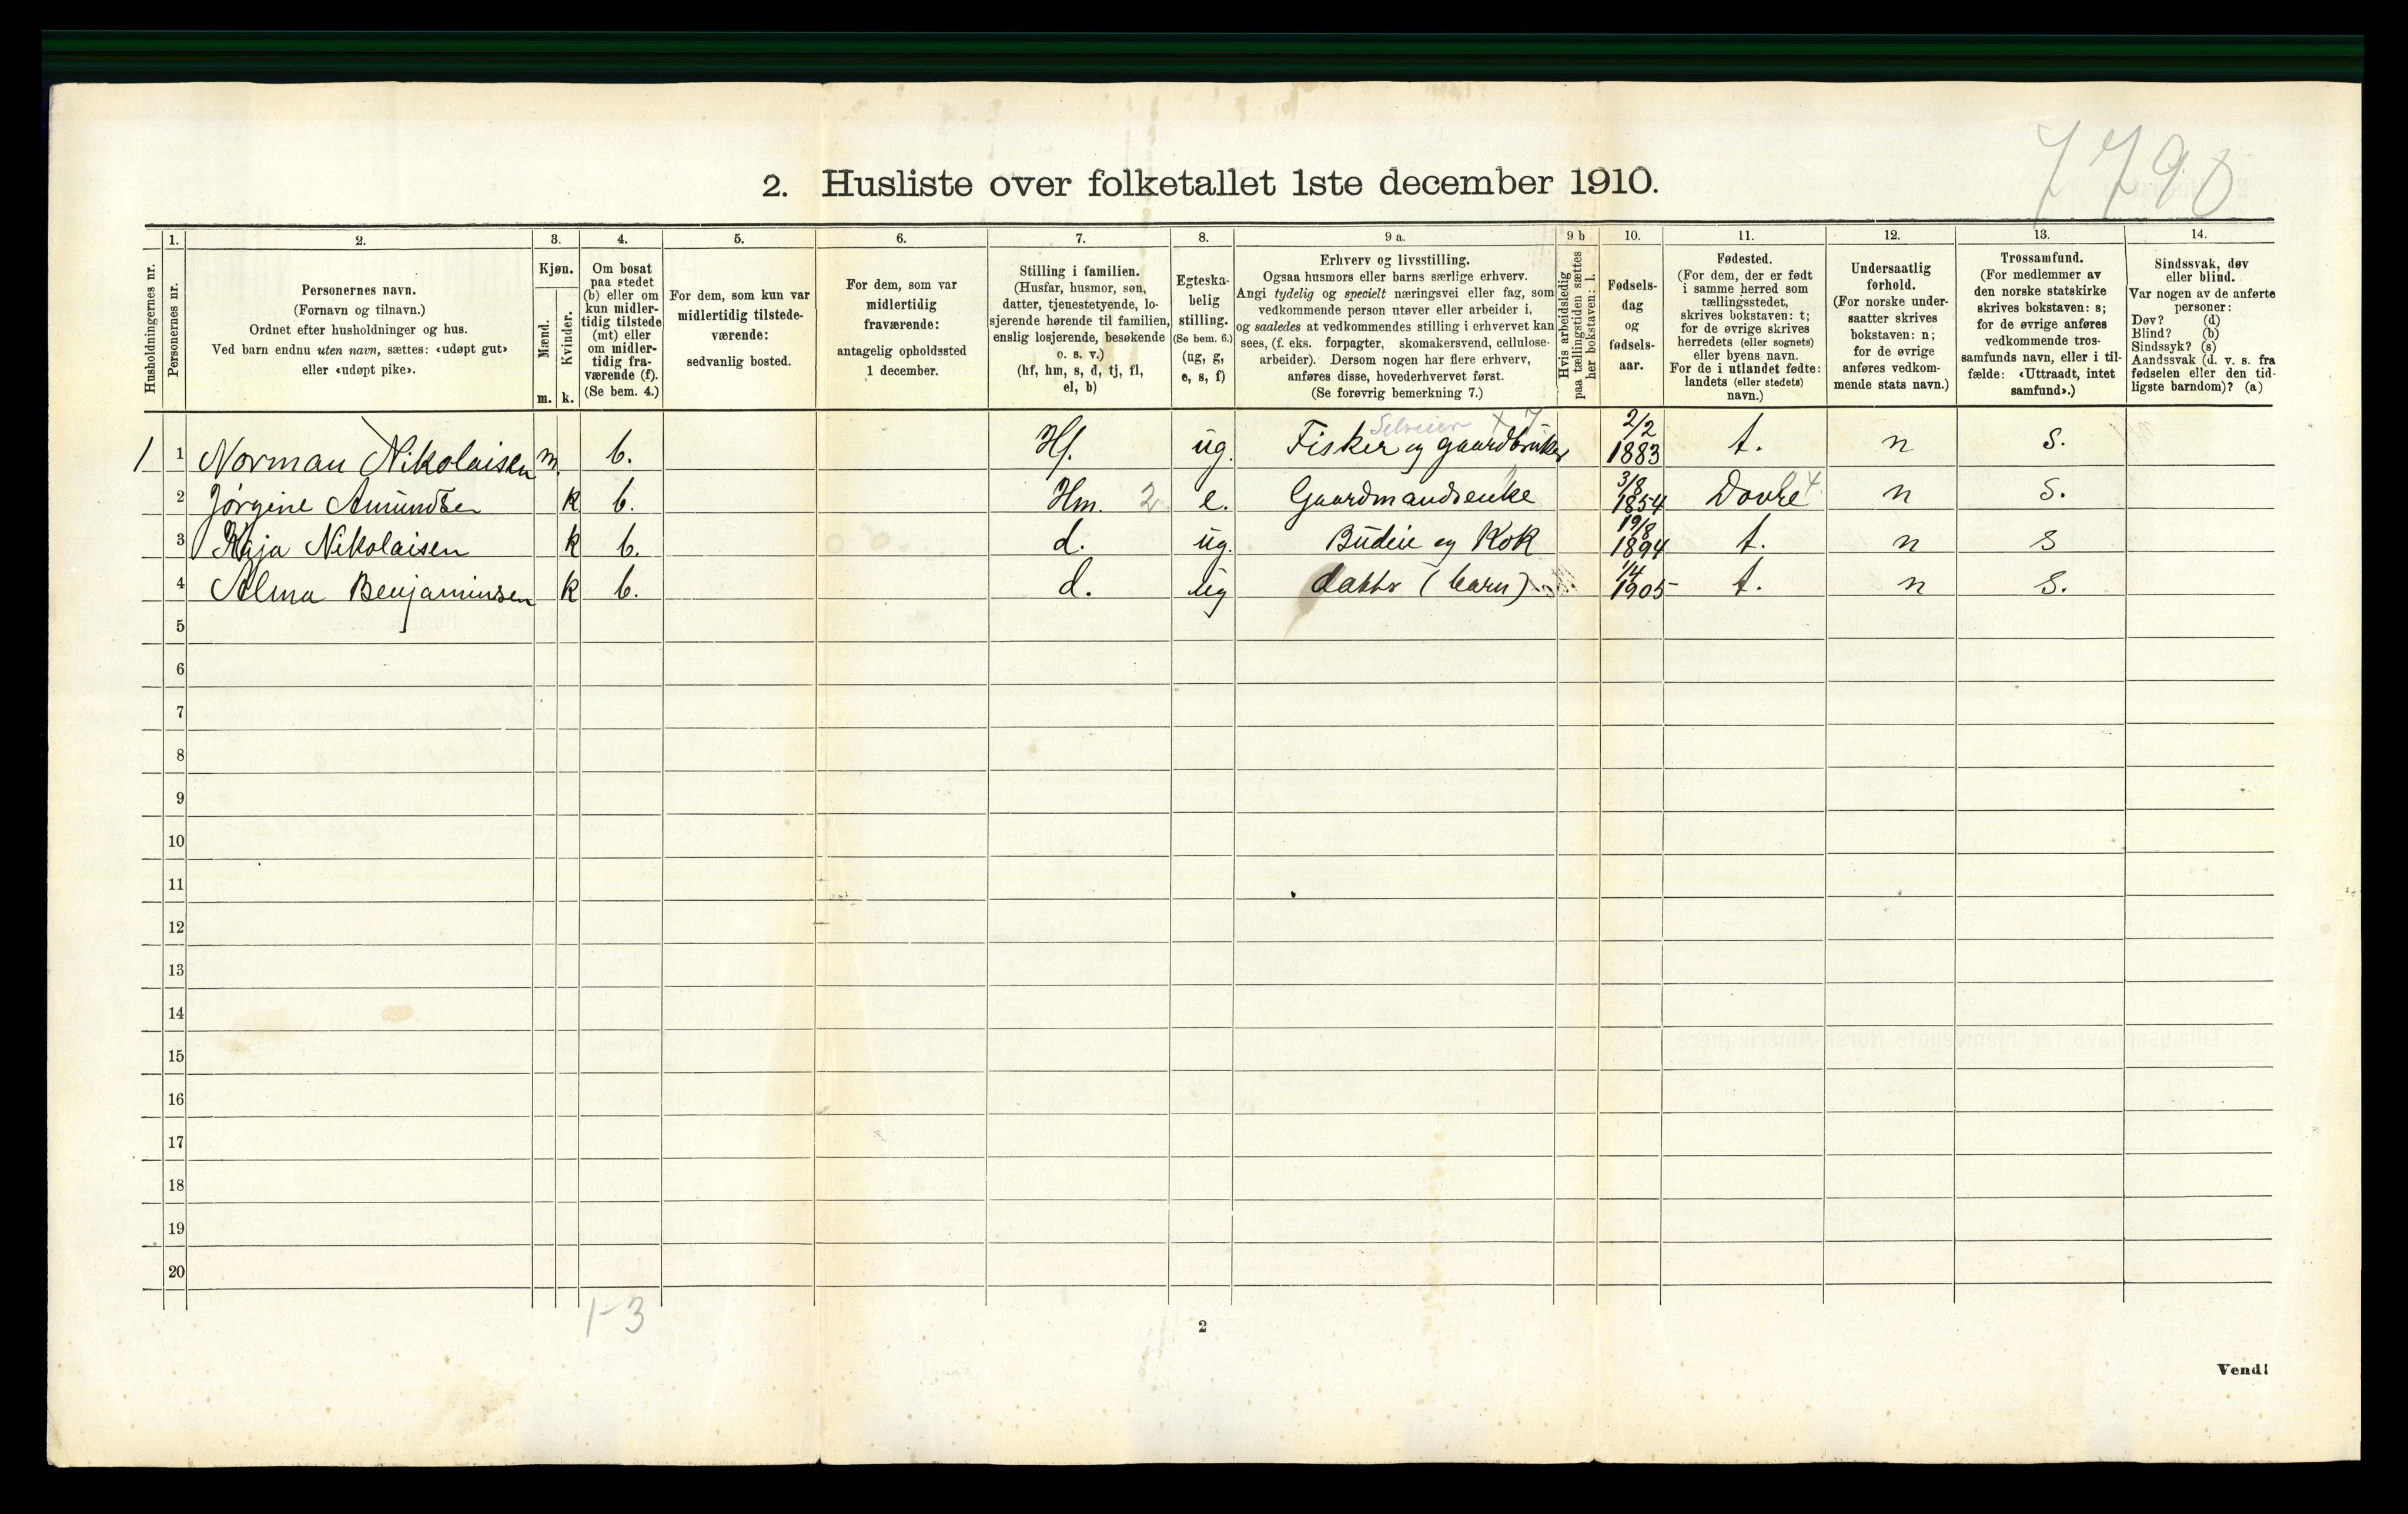 7790
2. Husliste over folketallet 1ste december 1910.
Husholdningernes nr.
1.
Personernes nr.
2.
Personernes navn.
(Fornavn og tilnavn.)
Ordnet efter husholdninger og hus.
Ved barn endnu uten navn, sættes: «udøpt gut»
eller «udøpt pike».
3.
Kjøn.
Mænd.
Kvinder.
m. k.
4.
Om bosat
paa stedet
(b) eller om
kun midler-
tidig tilstede
(mt) eller
om midler-
tidig fra-
værende (f).
(Se bem. 4.)
5.
For dem, som kun var
midlertidig tilstede-
værende:
sedvanlig bosted.
6.
For dem, som var
midlertidig
fraværende:
antagelig opholdssted
1 december.
7.
Stilling i familien.
(Husfar, husmor, søn,
datter, tjenestetyende, lo-
sjerende hørende til familien,
enslig losjerende, besøkende
o. s. v.)
(hf, hm, s, d, tj, fl,
el, b)
8.
Egteska-
belig
stilling.
(Se bem. 6.)
(ug, g,
e, s, f)
9 a.
Erhverv og livsstilling.
Ogsaa husmors eller barns særlige erhverv.
Angi tydelig og specielt næringsvei eller fag, som
vedkommende person utøver eller arbeider i,
og saaledes at vedkommendes stilling i erhvervet kan
sees, (f. eks. forpagter, skomakersvend, cellulose-
arbeider). Dersom nogen har flere erhverv,
anføres disse, hovederhvervet først.
(Se forøvrig bemerkning 7.)
9 b
Hvis arbeidsledig
paa tællingstiden sættes
her bokstaven: l.
10.
Fødsels-
dag
og
fødsels-
aar.
11.
Fødested.
(For dem, der er født
i samme herred som
tællingsstedet,
skrives bokstaven: t;
for de øvrige skrives
herredets (eller sognets)
eller byens navn.
For de i utlandet fødte:
landets (eller stedets)
navn.)
12.
Undersaatlig
forhold.
(For norske under-
saatter skrives
bokstaven: n;
for de øvrige
anføres vedkom-
mende stats navn.)
13.
Trossamfund.
(For medlemmer av
den norske statskirke
skrives bokstaven: s;
for de øvrige anføres
vedkommende tros-
samfunds navn, eller i til-
fælde: «Uttraadt, intet
samfund».)
14.
Sindssvak, døv
eller blind.
Var nogen av de anførte
personer:
Døv? (d)
Blind? (b)
Sindssyk? (s)
Aandssvak (d. v. s. fra
fødselen eller den tid-
ligste barndom)? (a)
Selveier x 7
1 1 Norman Nikolaisen m. b. Hf. ug. Fisker og gaardbruker 2/2 1883 t. n s.
2 Jørgine Amundsen k b. Hm. 2 e. Gaardmandsenke 3/8 1854 Dovre 4 n s.
3 Kaja Nikolaisen k b. d. ug. Budeie og Kok 19/8 1894 t. n s
4 Alma Benjaminsen k b. d. ug datter (barn) 1/4 1905 t. n s.
5
6
7
8
9
10
11
12
13
14
15
16
17
18
19
20
1-3
2
Vend!